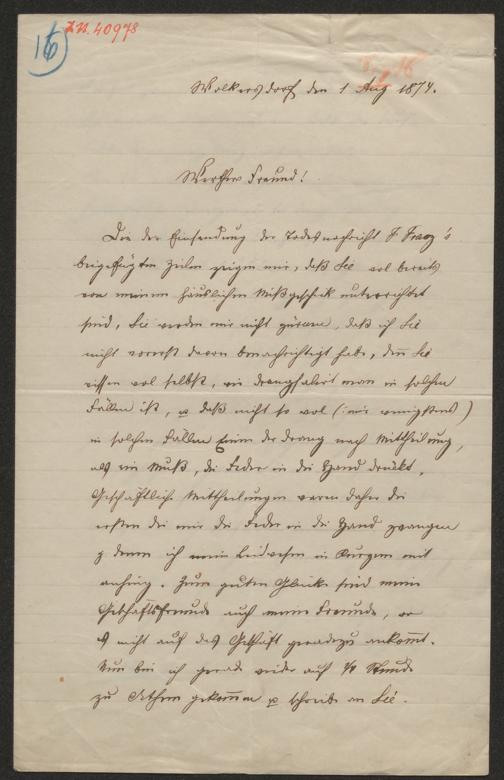 16
I.N. 40978
Wolkersdorf den 1 Aug 1874.
Werther Freund!
Die der Einsendung der Todesnachricht
beigefügten Zeilen zeigen mir, daß Sie wol bereits
von meinem häuslichen Mißgeschik unterrichtet
sind, Sie werden mir nicht zürnen, daß ich Sie
nicht vorerst davon benachrichtigt habe, den Sie
wissen wol selbst, wie drangsalirt man in solchen
Fällen ist, u daß nicht so wol (:mir wenigstens)
in solchen Fällen Einem der Drang nach Mittheilung,
als ein Muß, die Feder in die Hand drückt.
Geschäftliche Mittheilungen waren daher die
ersten die mir die Feder in die Hand zwangen
z denen ich mein Leidwesen in Kurzem mit
anhing. Zum guten Glücke sind meine
Geschäftsfreunde auch meine Freunde, wo
es nicht auf das Geschäft geradezu ankommt.
Nun bin ich gerade wieder auf Stunde
zu Athem gekommen u schreibe an Sie.